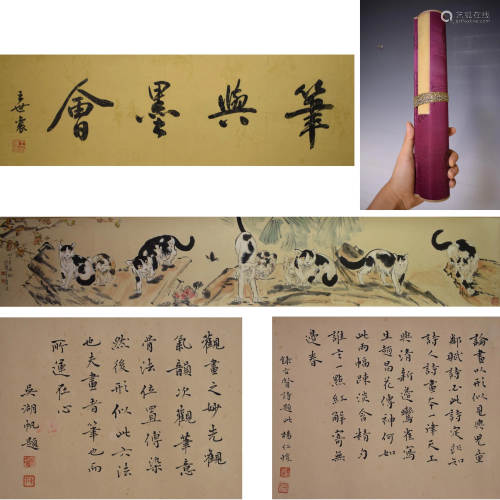 艺狐在线
筆與墨會
王世襄
觀畫之妙先觀
氣韻次觀筆意
骨法位置傳染
然後形似此六法
也夫畫者筆也而
所運在心
吳湖帆題
論畫以形似見與兒童
鄰賦詩必此詩定非知
詩人詩畫本一律天工
與清新邊鸞雀寫
生趙昌花傳神何如
此兩幅疎淡含精勻
誰言一點紅解寄無
邊春
錄古賢詩題此楊仁愷